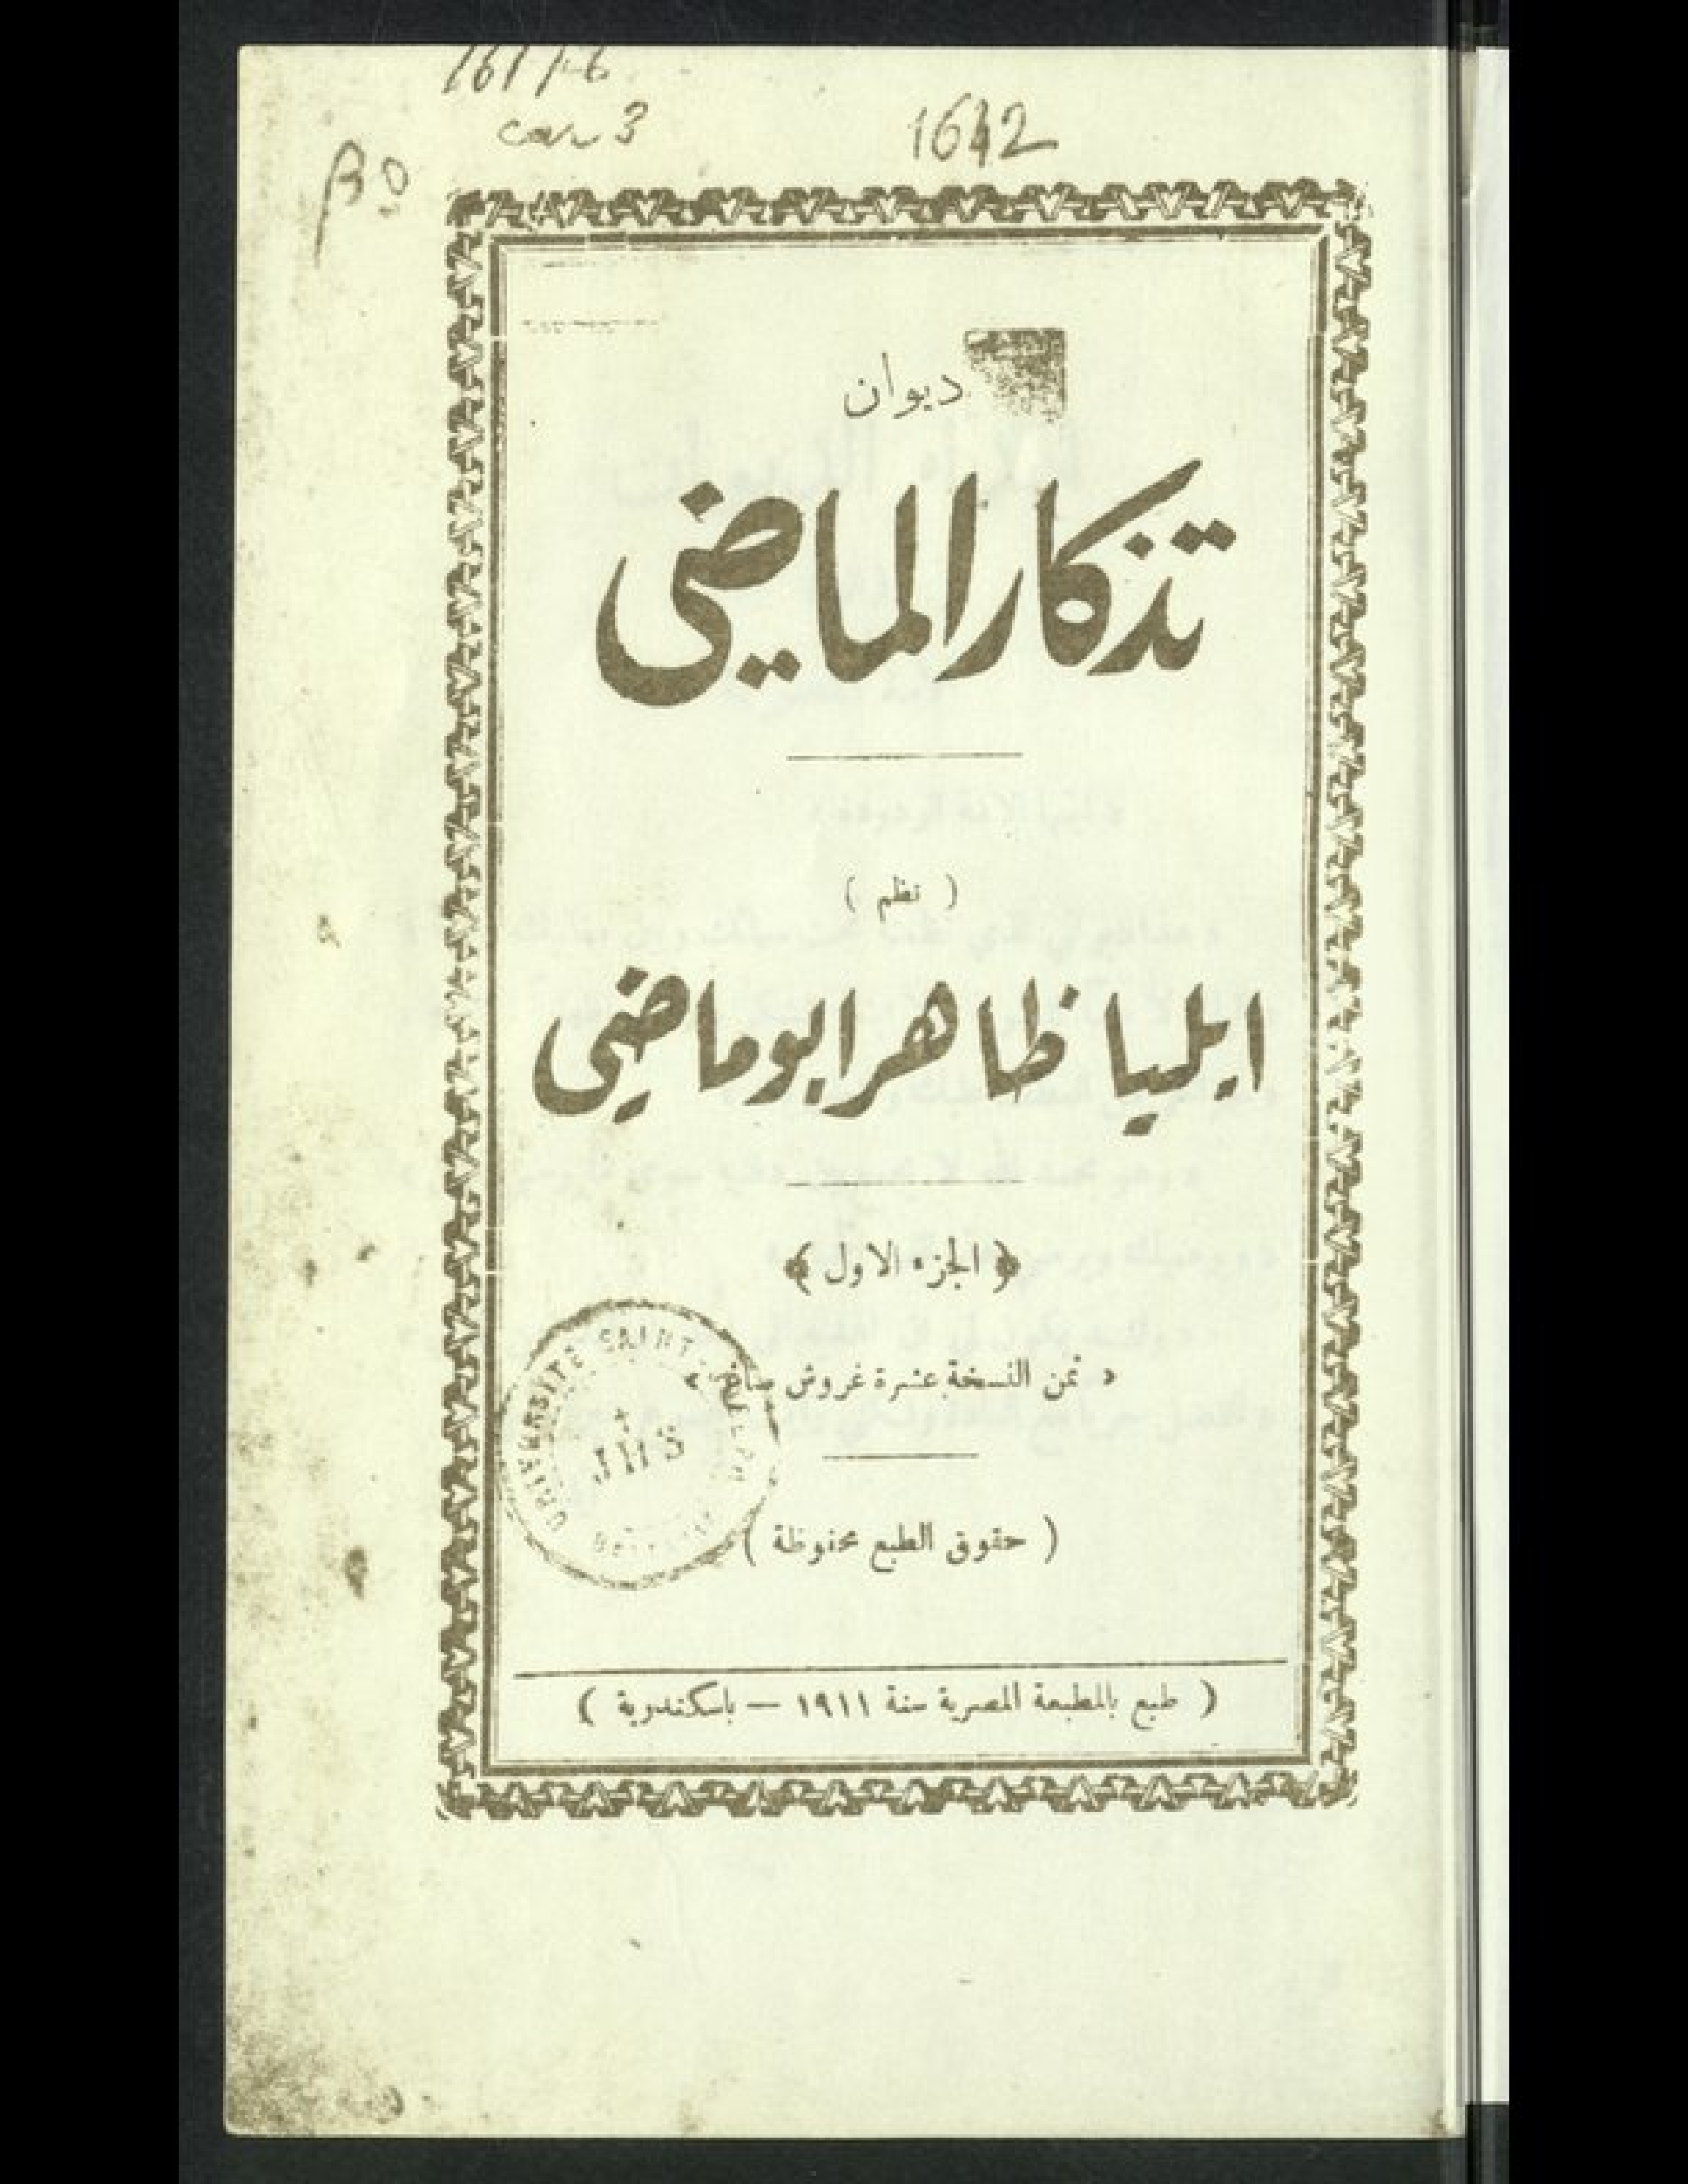 1642
ديوان
تذكار الماضي
( نظم )
ايليا ظاهر ابو ماضي
﴿ الجزء الاول ﴾
« ثمن النسخة عشرة غروش صاغ »
UNIVERSITE SAINT
( حقوق الطبع محفوظة )
( طبع بالمطبعة المصرية سنة ١٩١١ — باسكندرية )